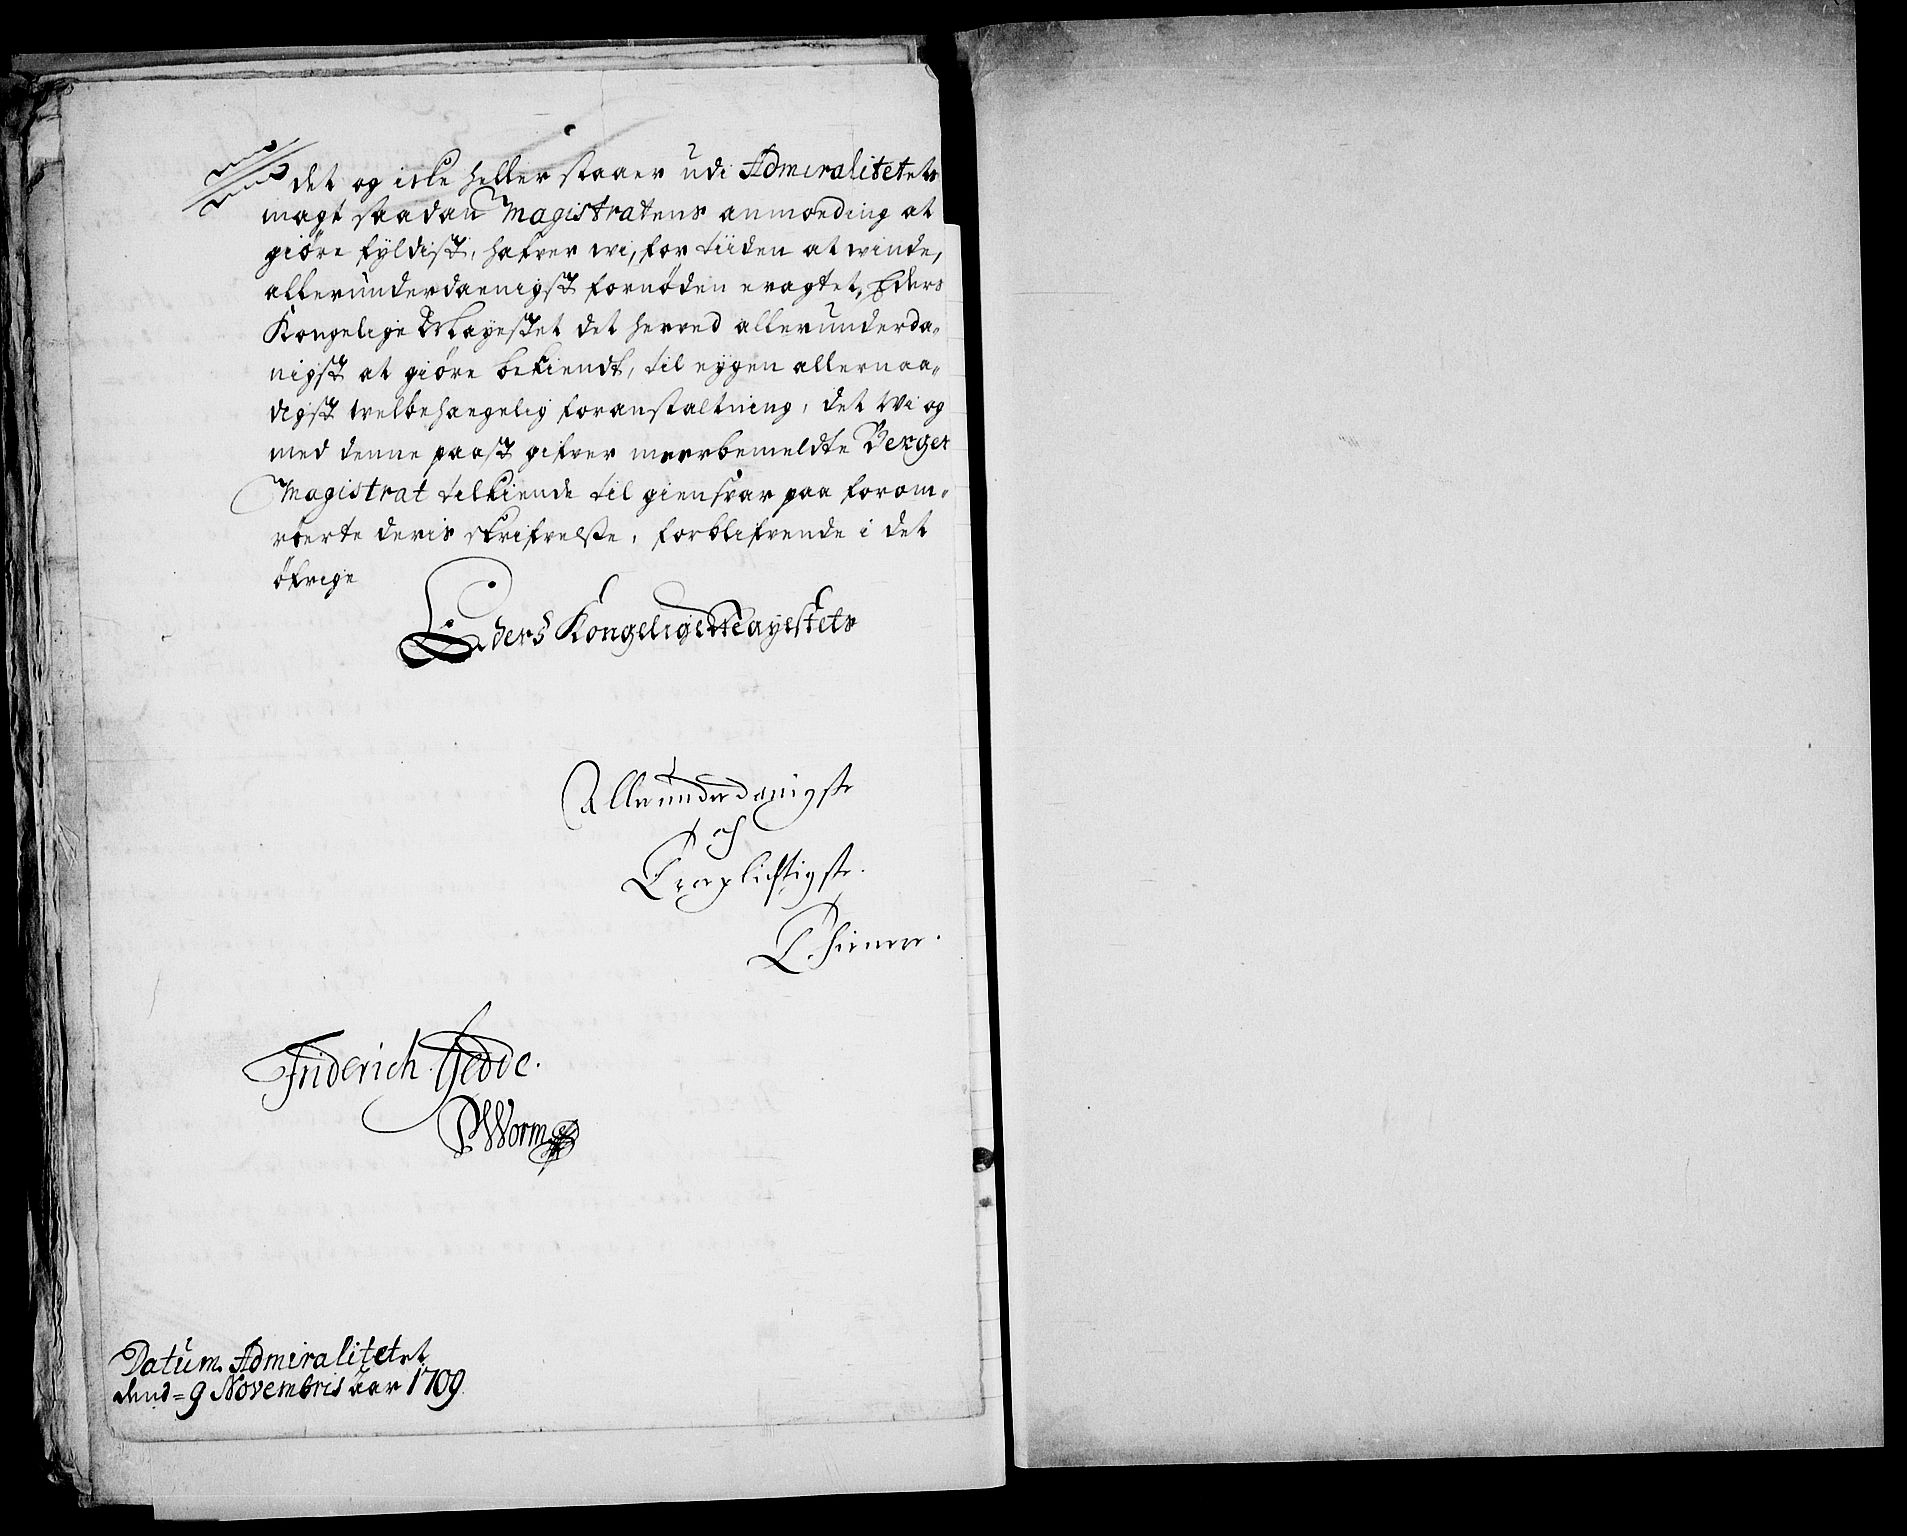 det og icke heller staaer udi Admiralitetets
magt saadan Magistratens anmoeding at
giöre fyldist, hafver wi, for tiiden at winde,
allerunderdaenigst fornöden eragtet, Eders
Kongelige Mayestet det herved allerunderda-
nigst at giöre bekiendt, til eygen allernaa-
digst welbehaegelig foranstaltning, det Wi og
med denne paast gifver meerbemeldte Berger
Magistrat tilkiende til giensvar paa forom-
röerte deris skrifvelsse, forblifvende i det
öfrige
Eders Kongelige Mayestets
Allerunderdanigste
og
Troeplichtigste
Thienere.
Friderich Gedde.
PWorm
Datum Admiralitetet
dend = 9 Novembris aar 1709